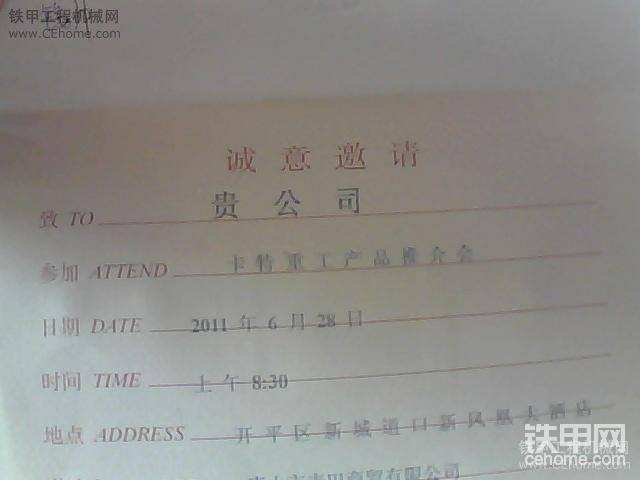 铁甲工程机械网
www.CEhome.com
诚意邀请
致 TO 贵公司
参加 ATTEND 卡特重工产品推介会
日期 DATE 2011年6月28日
时间 TIME 上午 8:30
地点 ADDRESS 开平区新城道口新凤凰大酒店
商贸有限公司
铁甲网
铁甲工程机械网
www.cehome.com